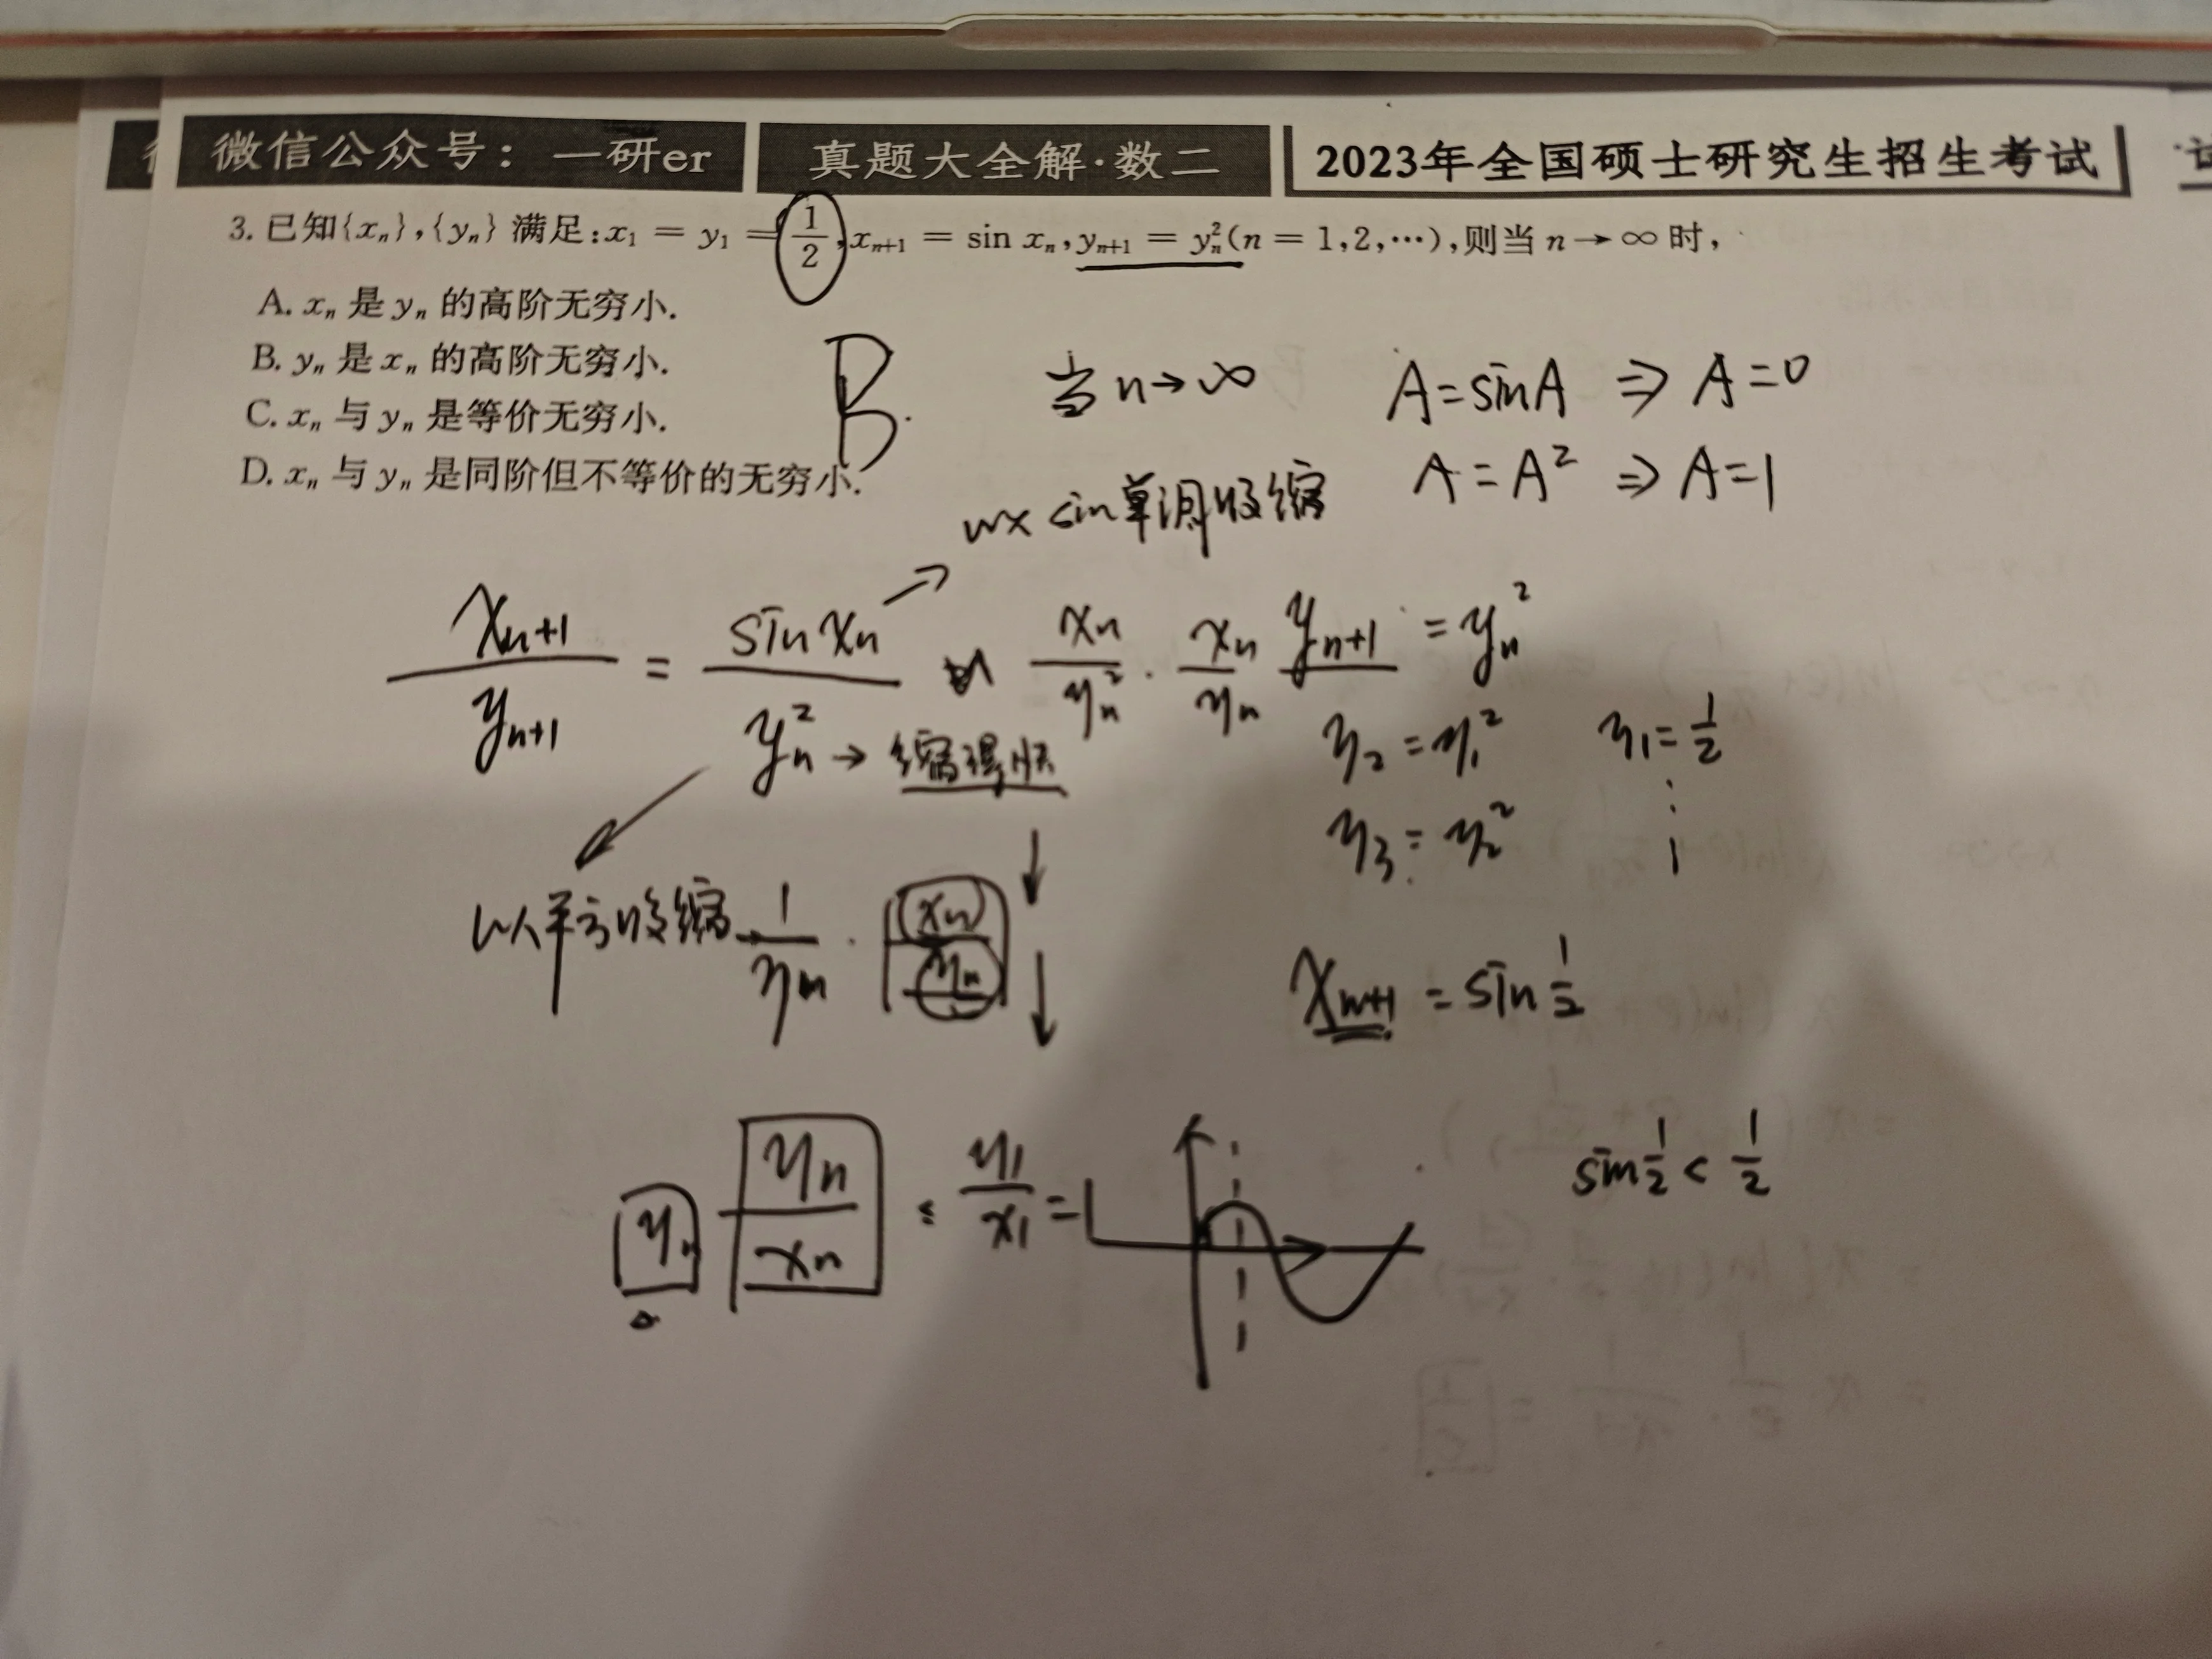 微信公众号：一研er 真题大全解·数二 2023年全国硕士研究生招生考试
3. 已知{xₙ},{yₙ} 满足:x₁ = y₁ = 1/2, xₙ₊₁ = sin xₙ, yₙ₊₁ = yₙ²(n = 1,2,⋯),则当 n → ∞ 时,
A. xₙ 是 yₙ 的高阶无穷小.
B. yₙ 是 xₙ 的高阶无穷小.
C. xₙ 与 yₙ 是等价无穷小.
D. xₙ 与 yₙ 是同阶但不等价的无穷小.
B.
当 n→∞ A=sinA ⇒ A=0
A=A² ⇒ A=1
sin单调收缩
xₙ₊₁/yₙ₊₁ = sin xₙ/yₙ² xₙ/yₙ² · xₙ/yₙ yₙ₊₁ = yₙ²
→ 缩得快
y₂ = y₁² y₁ = 1/2
y₃ = y₂² ⋮
以平方收缩 1/yₙ · xₙ/yₙ
xₙ₊₁ = sin 1/2
yₙ yₙ/xₙ ≤ y₁/x₁ = 1
sin 1/2 < 1/2